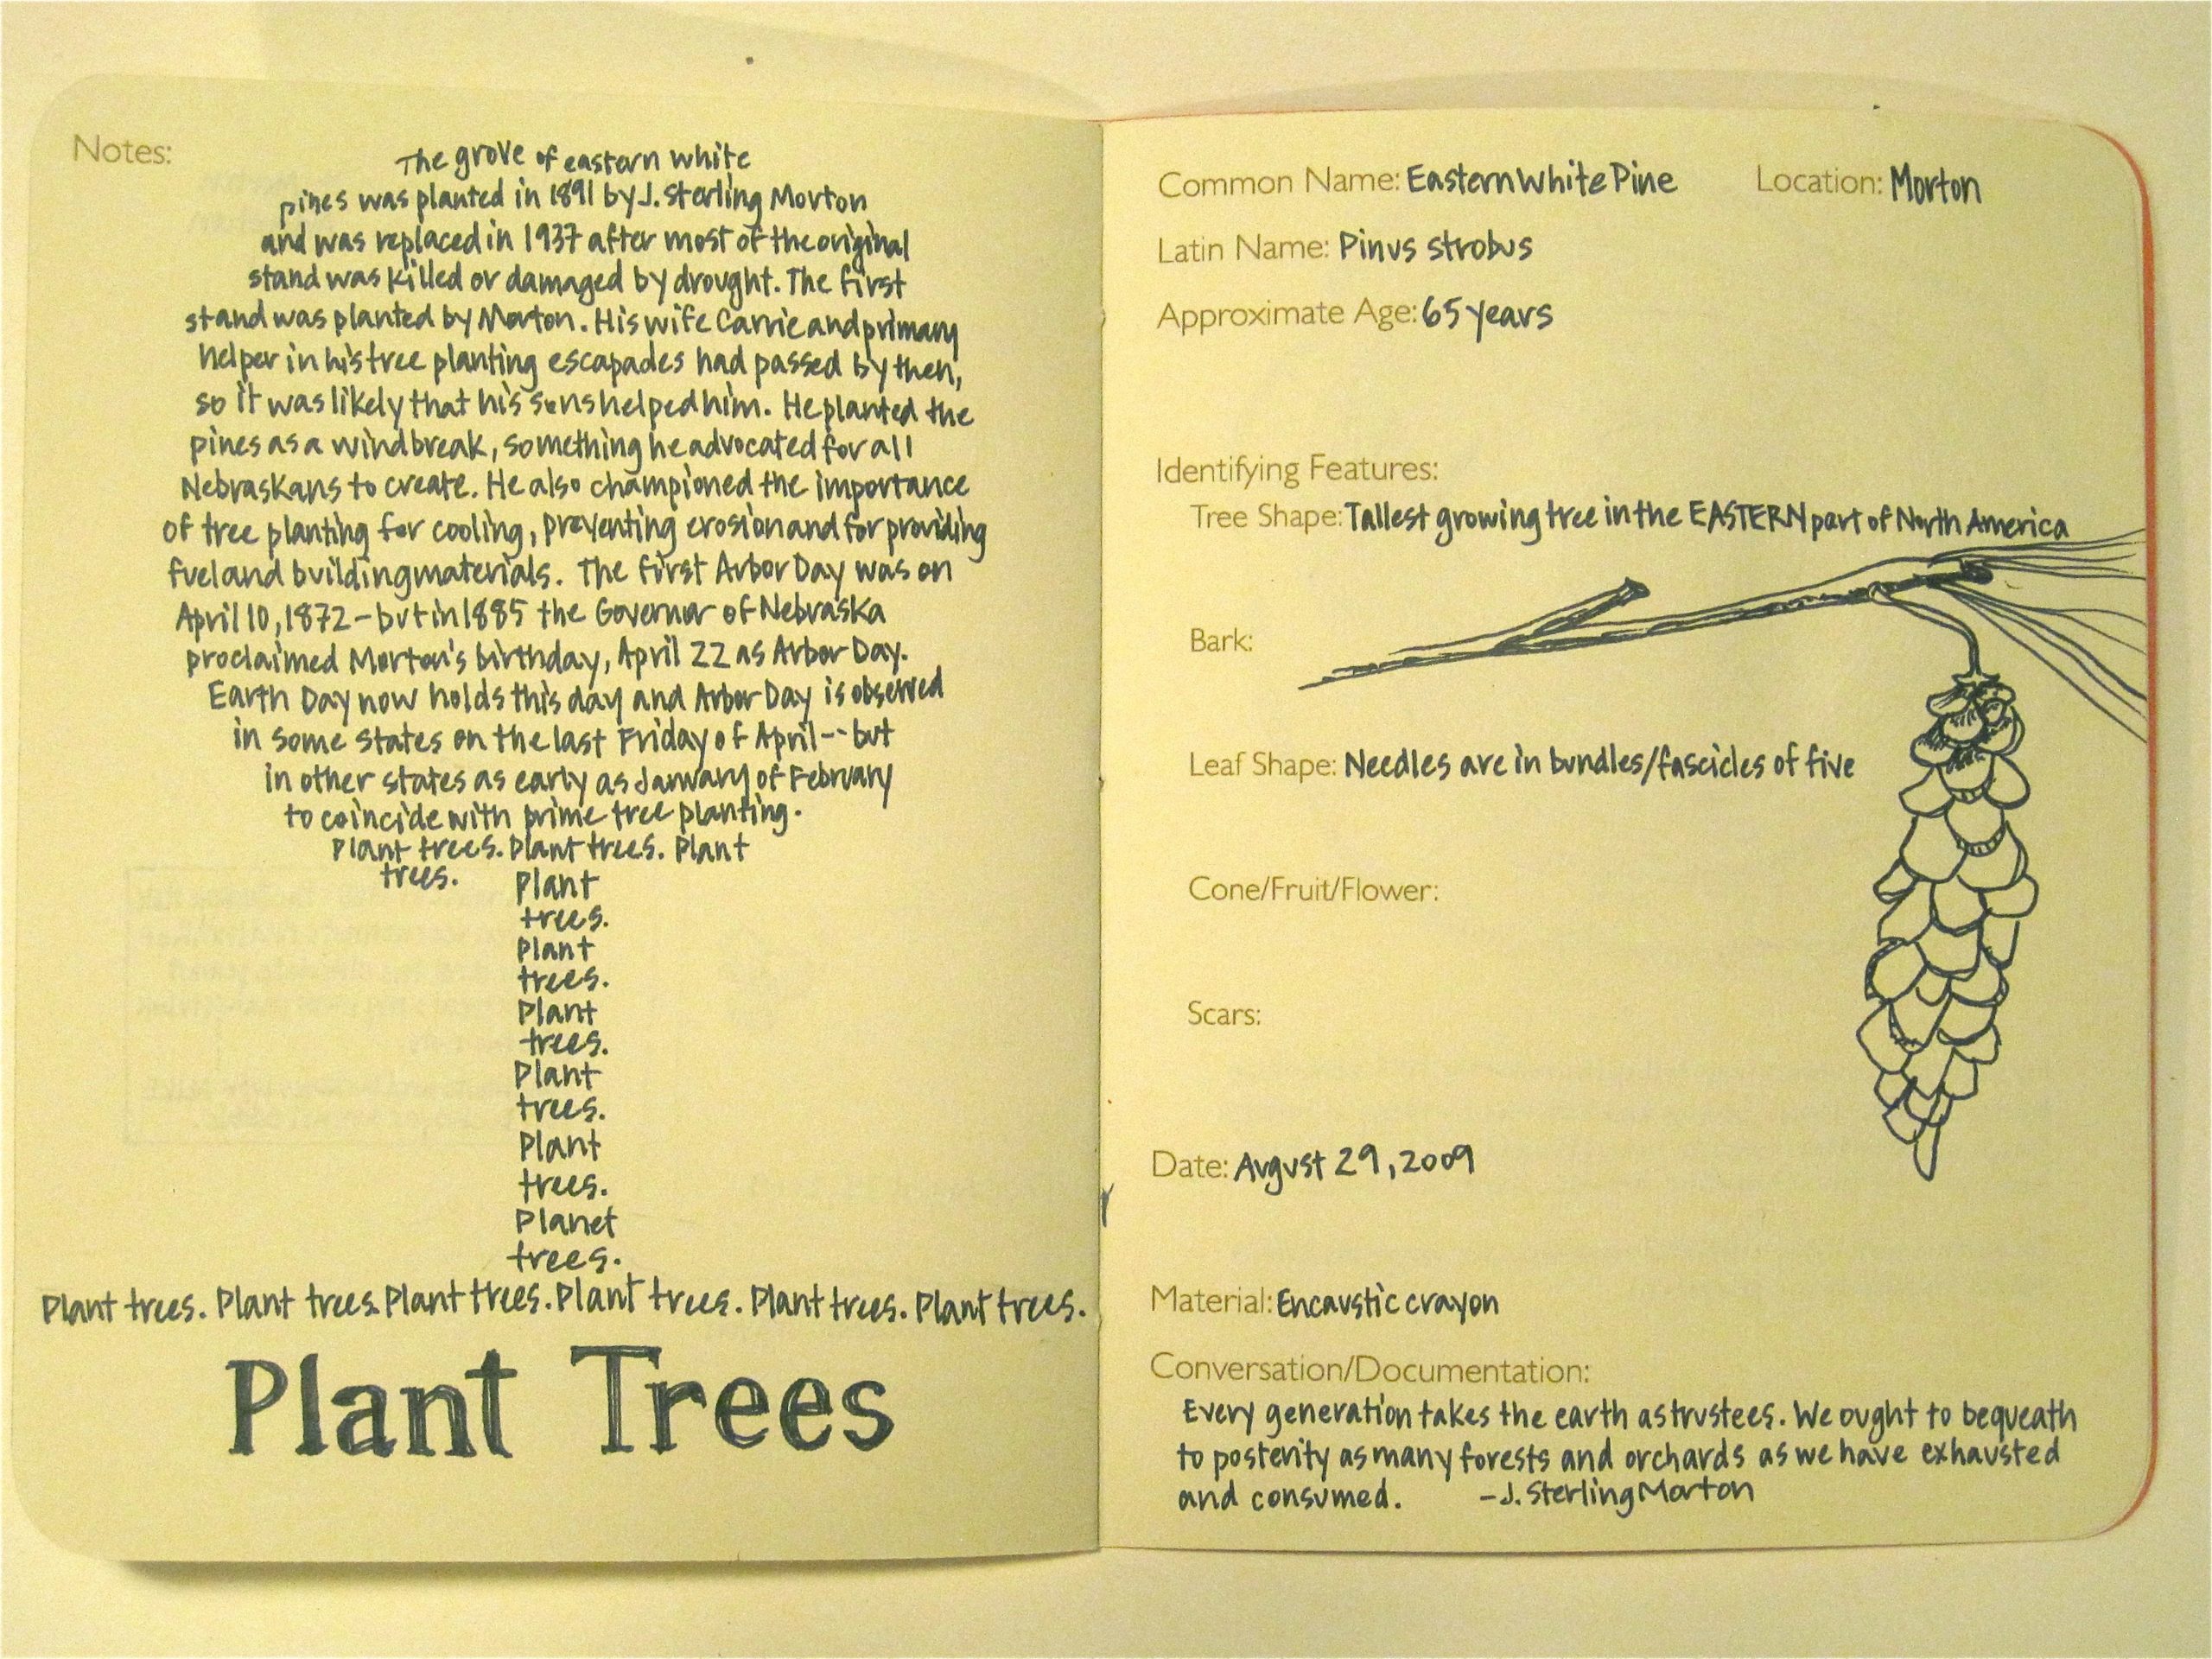 Notes:
The grove of eastern white
pines was planted in 1891 by J. Sterling Morton
and was replaced in 1937 after most of the original
stand was killed or damaged by drought. The first
stand was planted by Morton. His wife Carrie and primary
helper in his tree planting escapades had passed by then,
so it was likely that his sons helped him. He planted the
pines as a windbreak, something he advocated for all
Nebraskans to create. He also championed the importance
of tree planting for cooling, preventing erosion and for providing
fuel and building materials. The first Arbor Day was on
April 10, 1872 - but in 1885 the Governor of Nebraska
proclaimed Morton's birthday, April 22 as Arbor Day.
Earth Day now holds this day and Arbor Day is observed
in some states on the last Friday of April -- but
in other states as early as January of February
to coincide with prime tree planting.
Plant trees. Plant trees. Plant
trees.
Plant
trees.
Plant
trees.
Plant
trees.
Plant
trees.
Plant
trees.
Planet
trees.
Plant trees. Plant trees. Plant trees. Plant trees. Plant trees. Plant trees.
Plant Trees
Common Name: Eastern White Pine Location: Morton
Latin Name: Pinus strobus
Approximate Age: 65 years
Identifying Features:
Tree Shape: Tallest growing tree in the EASTERN part of North America
Bark:
Leaf Shape: Needles are in bundles/fascicles of five
Cone/Fruit/Flower:
Scars:
Date: August 29, 2009
Material: Encaustic crayon
Conversation/Documentation:
Every generation takes the earth as trustees. We ought to bequeath
to posterity as many forests and orchards as we have exhausted
and consumed. - J. Sterling Morton